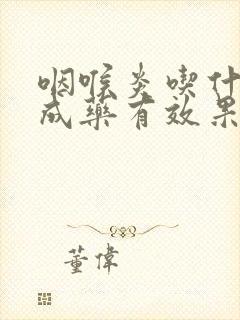 咽喉炎喫什
成藥有效果
董偉